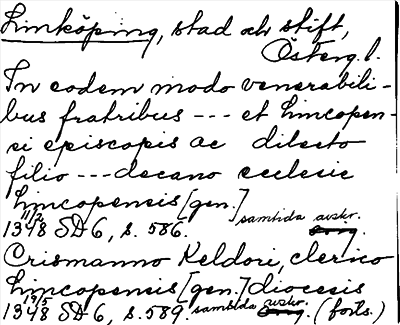 Linköping, stad och stift,
Österg. l.
In eodem modo venerabili-
bus fratribus --- et Lincopen-
si episcopis ac dilecto
filio --- decano ecclesie
Lincopensis [gen.]
11/2 1348 SD 6, s. 586. samtida avskr.
Crismanno Keldori, clerico
Lincopensis [gen.] diocesis
19/5 1348 SD 6, s. 589. samtida avskr. (forts.)